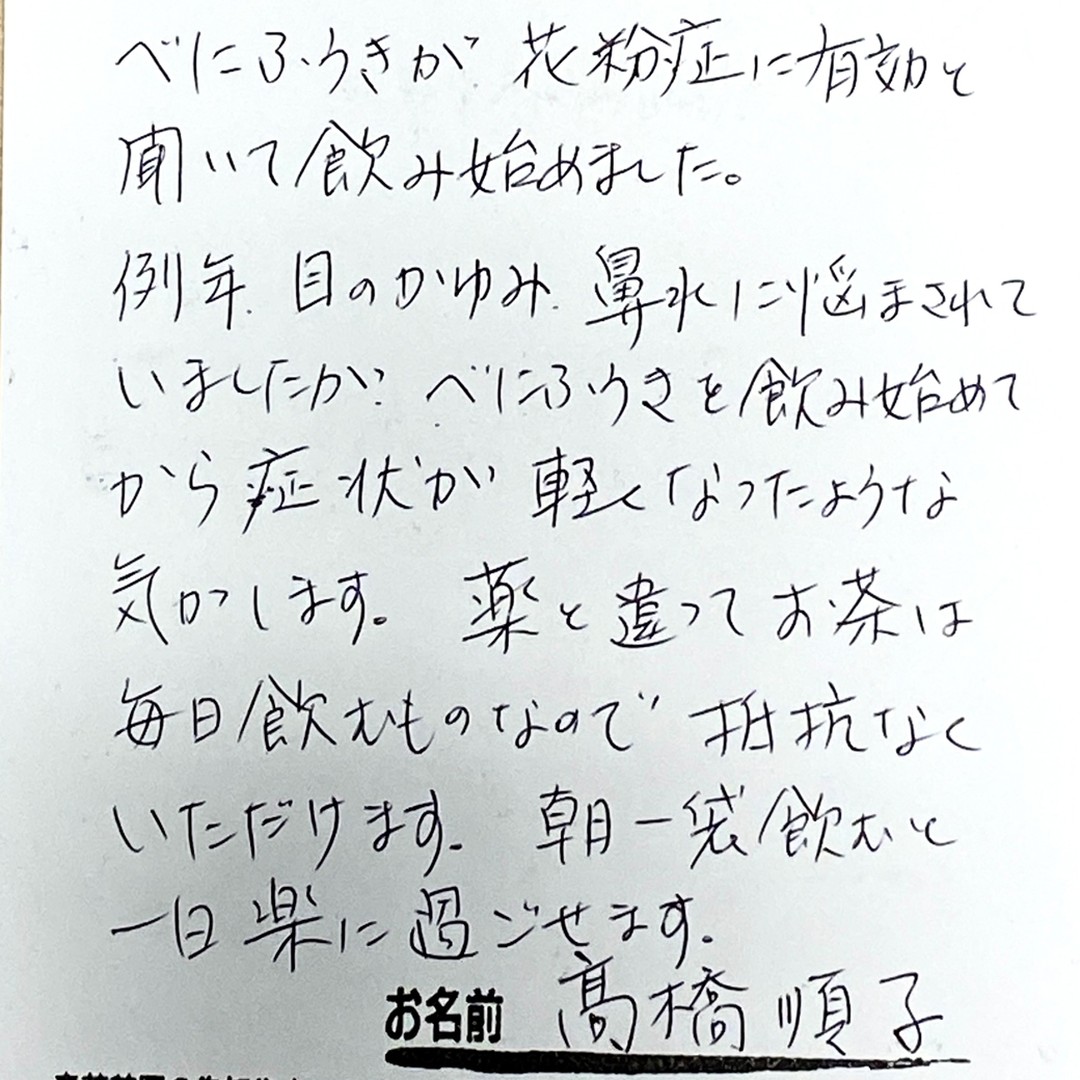 べにふうきが花粉症に有効と
聞いて飲み始めました。
例年、目のかゆみ、鼻水に悩まされて
いましたが、べにふうきを飲み始めて
から症状が軽くなったような
気がします。薬と違ってお茶は
毎日飲むものなので抵抗なく
いただけます。朝一袋飲むと
一日楽に過ごせます。
お名前 髙橋順子